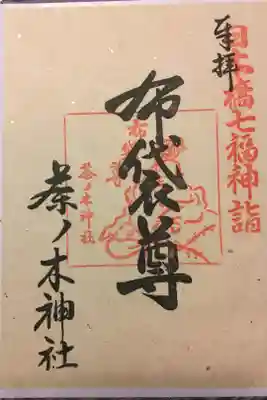 日本橋七福神詣
奉拝
布袋尊
茶ノ木神社
茶ノ木神社